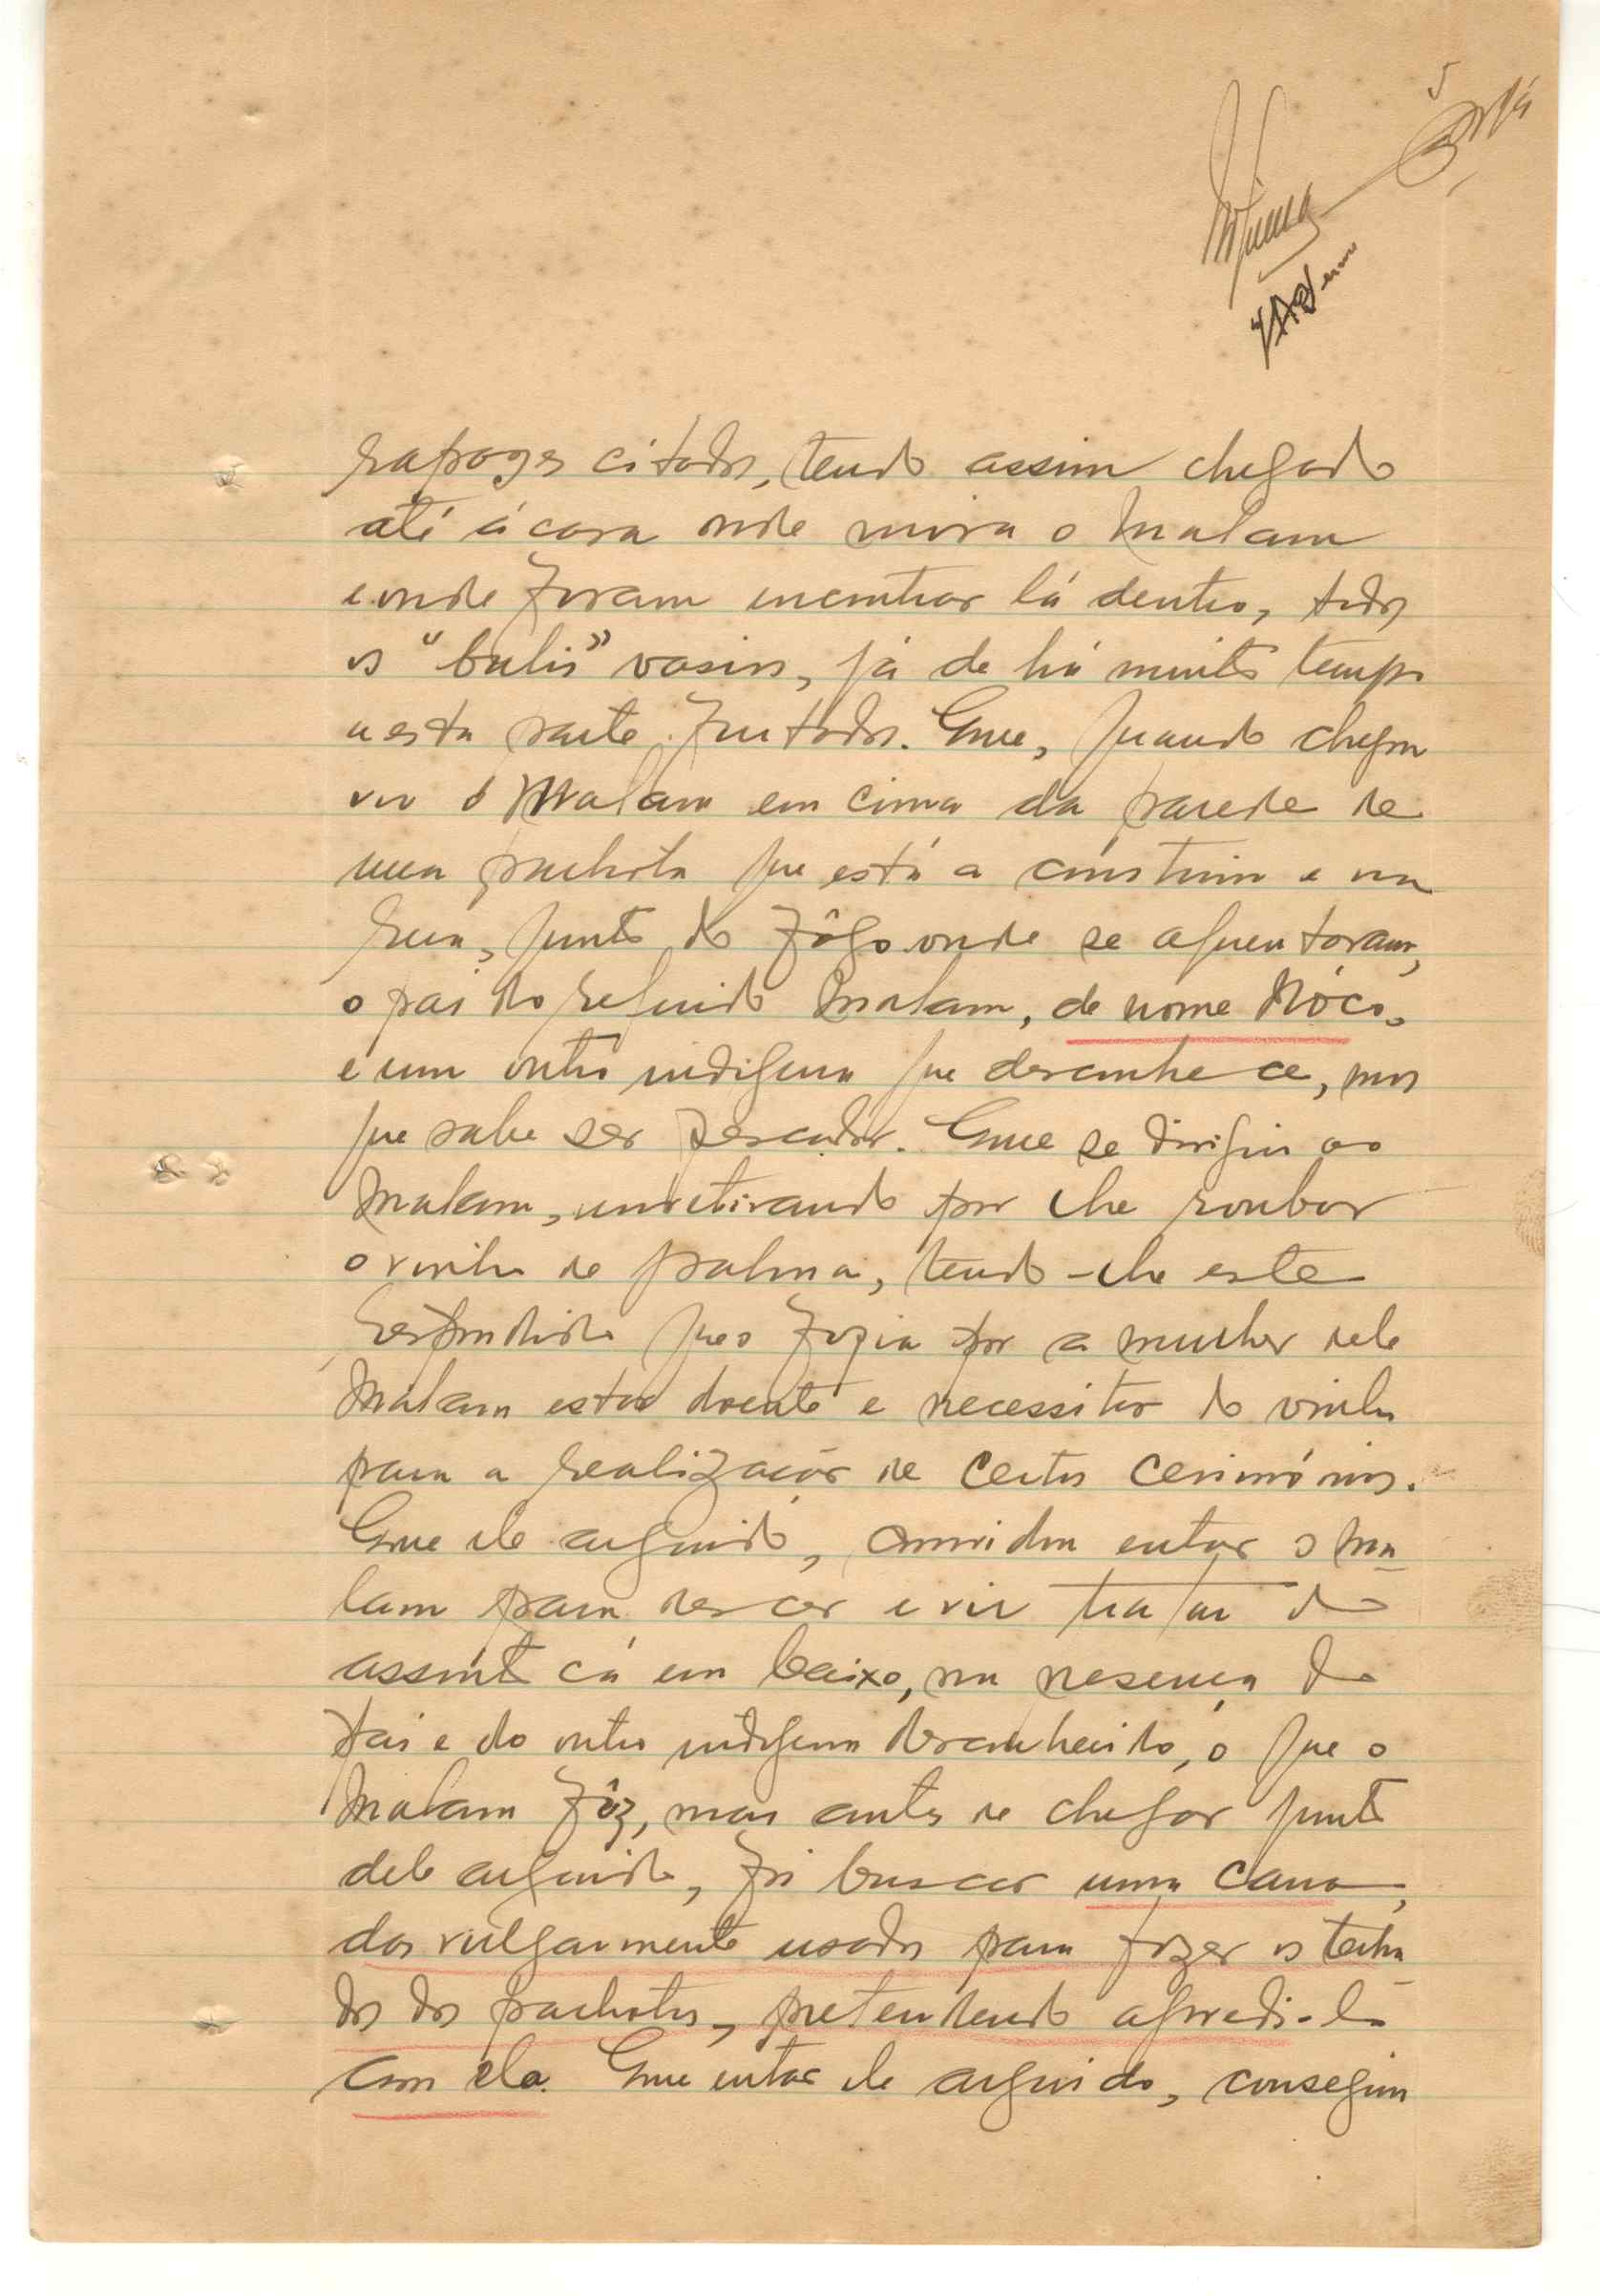 5
rapazes citados, tendo assim chegado
até á casa onde mora o Malam
e onde foram encontrar lá dentro, todos
os "bulis" vasios, já de há muito tempo
a esta parte furtados. Que, quando chegou
viu o Malam em cima da parede de
uma palhota que está a construir e na
rua, junto do fôgo onde se aquentavam,
o pai do referido Malam, de nome Nócó,
e um outro indigena que desconhece, mas
que sabe ser pescador. Que se dirigiu ao
Malam, invetivando por lhe roubar
o vinho de palma, tendo-lhe este
respondido que o fazia por a mulher dele
Malam estar doente e necessitar do vinho
para a realização de certas cerimónias.
Que ele arguido, convidou entao o Ma-
lam para descer e vir tratar do
assunto cá em baixo, na presença do
pai e do outro indigena desconhecido, o que o
Malam fêz, mas antes de chegar junto
dele arguido, foi buscar uma cana,
das vulgarmente usadas para fazer os telha-
dos das palhotas, pretendendo agredi-lo
com ela. Que entao ele arguido, conseguiu